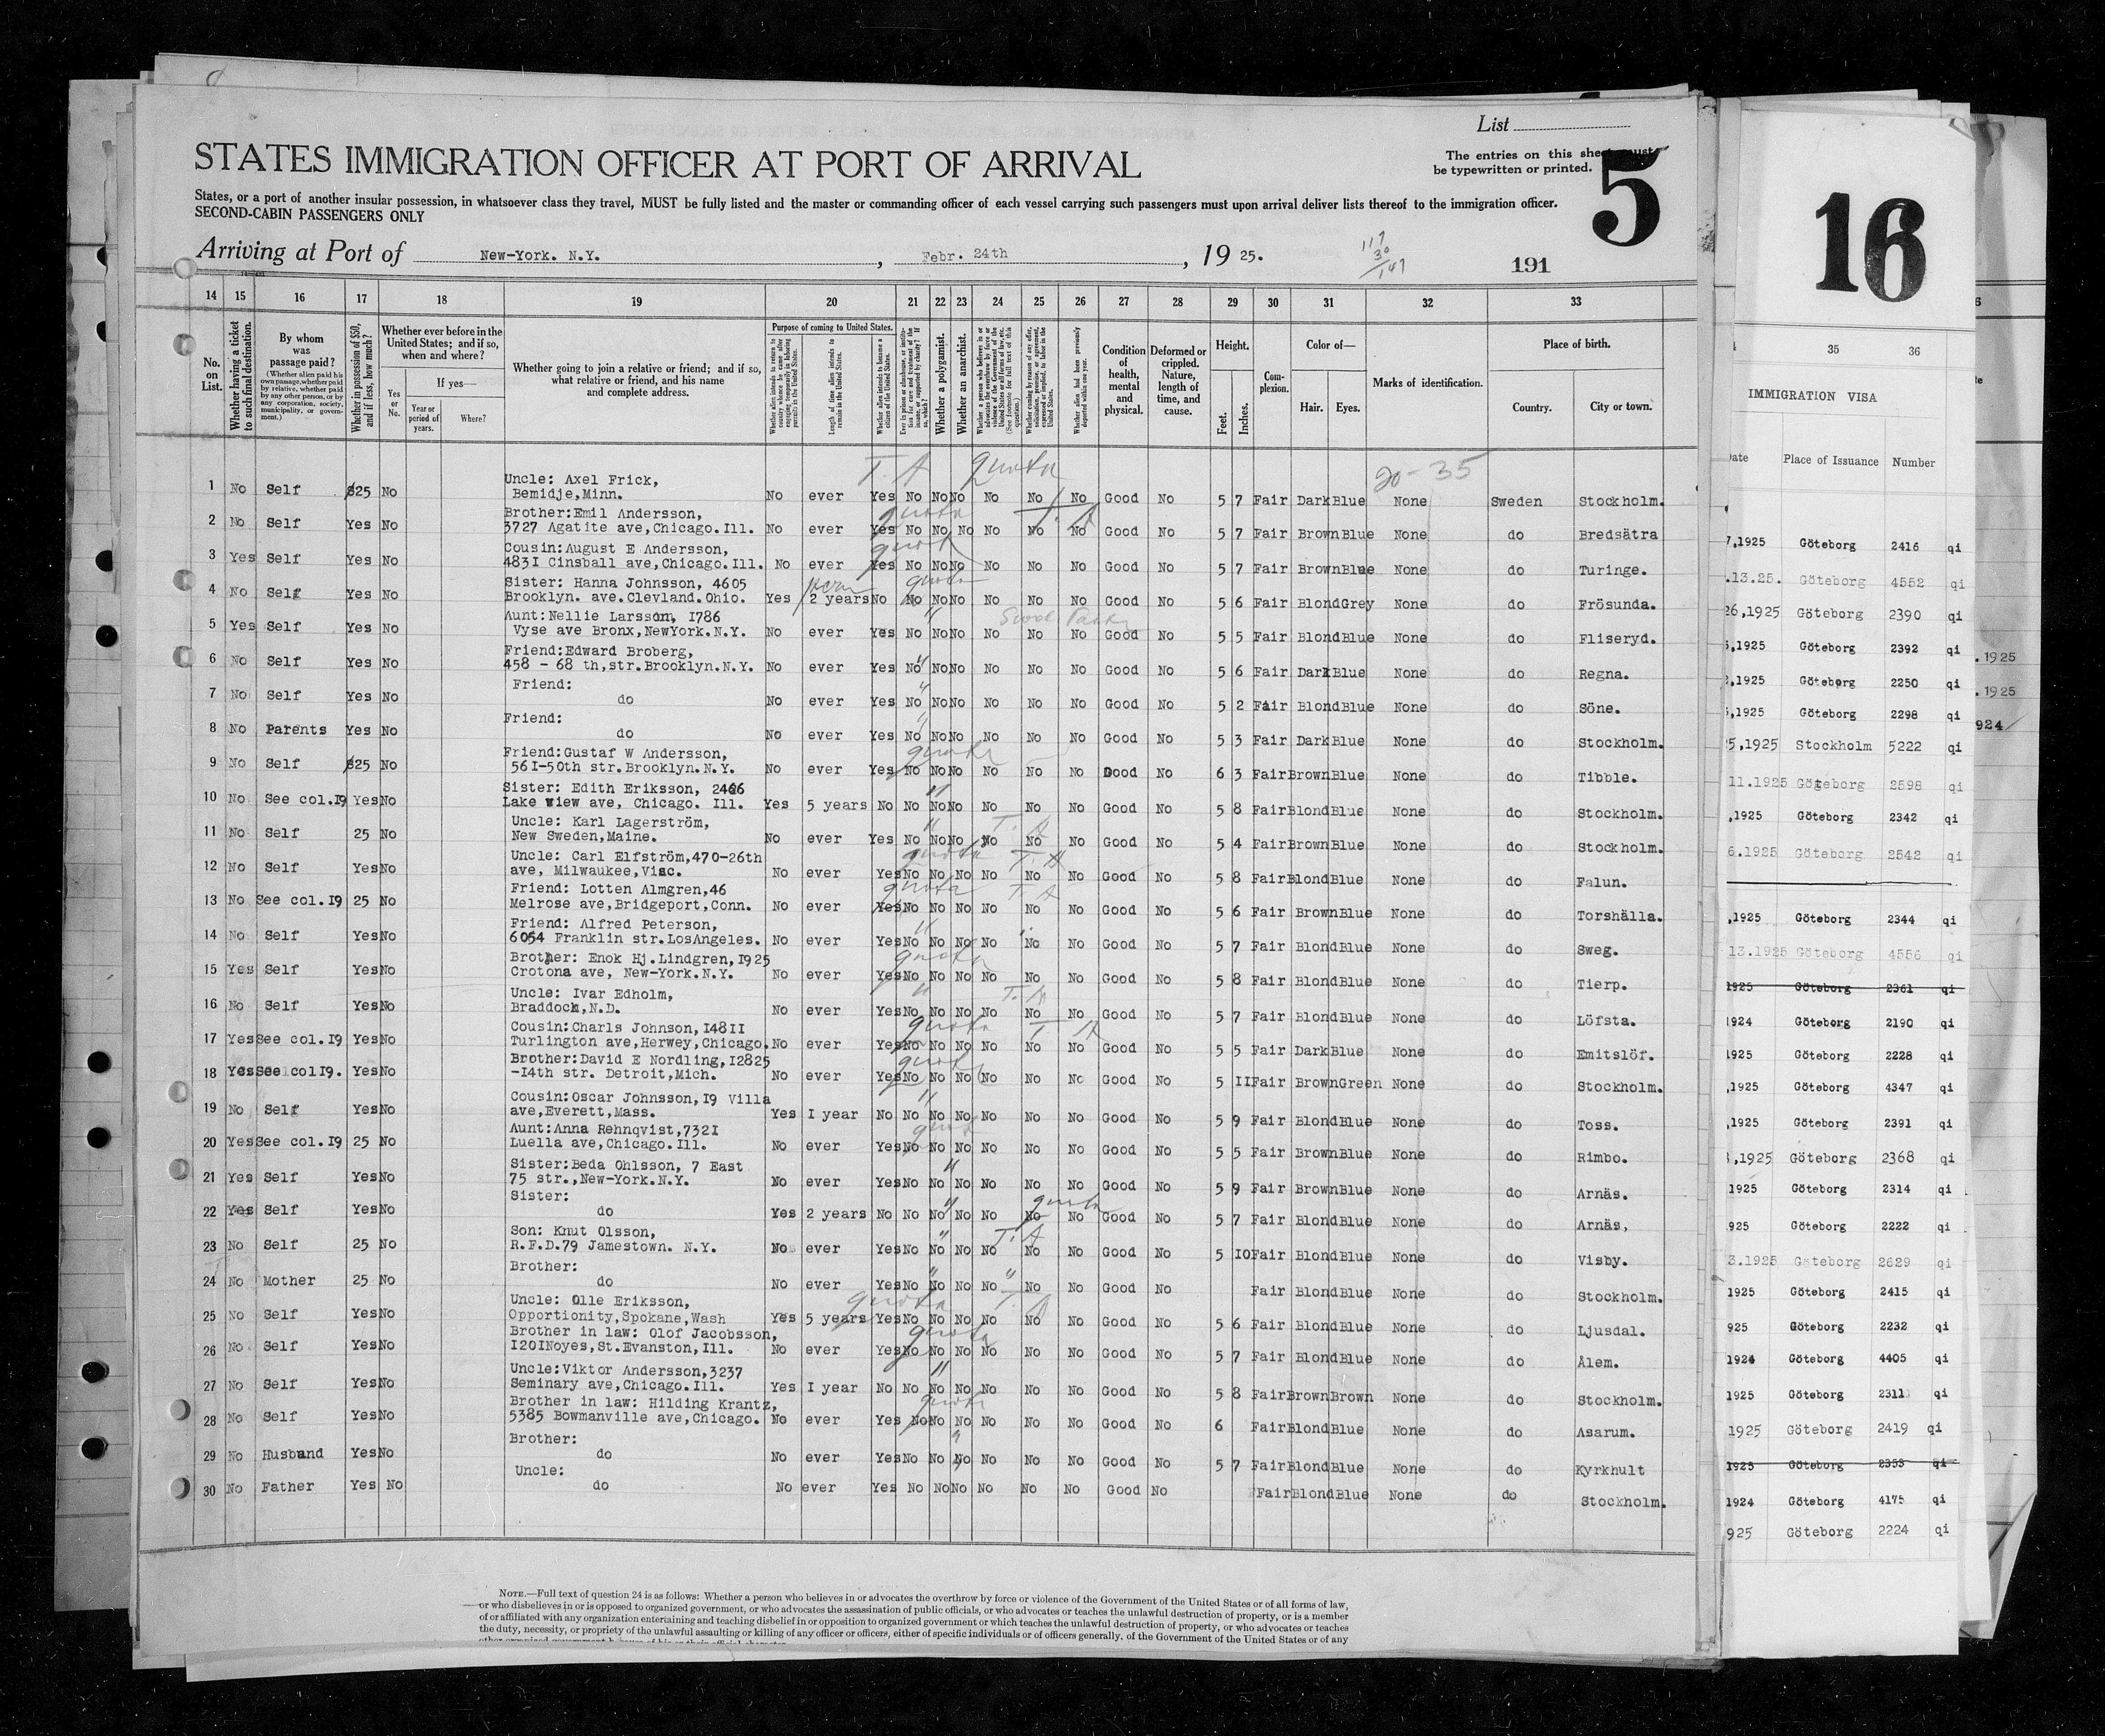 List
STATES IMMIGRATION OFFICER AT PORT OF ARRIVAL
The entries on this sheet must
be typewritten or printed.
5
States, or a port of another insular possession, in whatsoever class they travel, MUST be fully listed and the master or commanding officer of each vessel carrying such passengers must upon arrival deliver lists thereof to the immigration officer.
SECOND-CABIN PASSENGERS ONLY
Arriving at Port of New-York. N.Y. , Febr. 24th , 19 25.
117
30
147
191
14 15 16 17 18 19 20 21 22 23 24 25 26 27 28 29 30 31 32 33
No. on List.
Whether having a ticket to such final destination.
By whom was passage paid?
(Whether alien paid his own passage, whether paid by relative, whether paid by any other person, or by any corporation, society, municipality, or government.)
Whether in possession of $50, and if less, how much?
Whether ever before in the United States; and if so, when and where?
Yes or No.
If yes—
Year or period of years.
Where?
Whether going to join a relative or friend; and if so, what relative or friend, and his name and complete address.
Purpose of coming to United States.
Whether alien intends to return to country whence he came after engaging temporarily in laboring pursuits in the United States.
Length of time alien intends to remain in the United States.
Whether alien intends to become a citizen of the United States.
Whether a polygamist.
Whether an anarchist.
Whether alien had been previously deported within one year.
Condition of health, mental and physical.
Deformed or crippled. Nature, length of time, and cause.
Height.
Feet.
Inches.
Complexion.
Color of—
Hair.
Eyes.
Marks of identification.
Place of birth.
Country.
City or town.
T. A quota 20-35
Uncle: Axel Frick,
1 No Self $25 No Bemidje,Minn. No ever Yes No No No No No No Good No 5 7 Fair Dark Blue None Sweden Stockholm.
Brother:Emil Andersson,
2 No Self Yes No 3727 Agatite ave,Chicago.Ill. No ever Yes No No No No No No Good No 5 7 Fair Brown Blue None do Bredsätra
Cousin:August E Andersson,
3 Yes Self Yes No 4831 Cinsball ave,Chicago.Ill. No ever Yes No No No No No No Good No 5 7 Fair Brown Blue None do Turinge.
Sister: Hanna Johnsson, 4605
4 No Self Yes No Brooklyn. ave.Clevland.Ohio. Yes 2 years No No No No No No No Good No 5 6 Fair Blond Grey None do Frösunda.
Aunt:Nellie Larsson, 1786
5 Yes Self Yes No Vyse ave Bronx,NewYork.N.Y. No ever Yes No No No No No No Good No 5 5 Fair Blond Blue None do Fliseryd.
Friend:Edward Broberg,
6 No Self Yes No 458 - 68 th,str.Brooklyn.N.Y. No ever Yes No No No No No No Good No 5 6 Fair Dark Blue None do Regna.
Friend:
7 No Self Yes No do No ever Yes No No No No No No Good No 5 2 Fair Blond Blue None do Söne.
Friend:
8 No Parents Yes No do No ever Yes No No No No No No Good No 5 3 Fair Dark Blue None do Stockholm.
Friend:Gustaf W Andersson,
9 No Self $25 No 561-50th str.Brooklyn.N.Y. No ever Yes No No No No No No Dood No 6 3 Fair Brown Blue None do Tibble.
Sister: Edith Eriksson, 2466
10 No See col.19 Yes No Lake wiew ave, Chicago. Ill. Yes 5 years No No No No No No No Good No 5 8 Fair Blond Blue None do Stockholm.
Uncle: Karl Lagerström,
11 No Self 25 No New Sweden,Maine. No ever Yes No No No No No No Good No 5 4 Fair Brown Blue None do Stockholm.
Uncle: Carl Elfström,470-26th
12 No Self Yes No ave, Milwaukee,Visc. No ever Yes No No No No No No Good No 5 8 Fair Blond Blue None do Falun.
Friend: Lotten Almgren,46
13 No See col.19 25 No Melrose ave,Bridgeport,Conn. No ever Yes No No No No No No Good No 5 6 Fair Brown Blue None do Torshälla.
Friend: Alfred Peterson,
14 No Self Yes No 6054 Franklin str.LosAngeles. No ever Yes No No No No No No Good No 5 7 Fair Blond Blue None do Sweg.
Brother: Enok Hj.Lindgren,1925
15 Yes Self Yes No Crotona ave, New-York.N.Y. No ever Yes No No No No No No Good No 5 8 Fair Blond Blue None do Tierp.
Uncle: Ivar Edholm,
16 No Self Yes No Braddock,N.D. No ever Yes No No No No No No Good No 5 7 Fair Blond Blue None do Löfsta.
Cousin:Charls Johnson,14811
17 Yes See col.19 Yes No Turlington ave,Herwey,Chicago. No ever Yes No No No No No No Good No 5 5 Fair Dark Blue None do Emitslöf.
Brother:David E Nordling,12825
18 Yes See col19. Yes No -14th str. Detroit,Mich. No ever Yes No No No No No No Good No 5 11 Fair Brown Green None do Stockholm.
Cousin:Oscar Johnsson,19 Villa
19 No Self Yes No ave,Everett,Mass. Yes 1 year No No No No No No No Good No 5 9 Fair Blond Blue None do Toss.
Aunt:Anna Rehnqvist,7321
20 Yes See col.19 25 No Luella ave,Chicago.Ill. No ever Yes No No No No No No Good No 5 5 Fair Brown Blue None do Rimbo.
Sister:Beda Ohlsson, 7 East
21 Yes Self Yes No 75 str.,New-York.N.Y. No ever Yes No No No No No No Good No 5 9 Fair Brown Blue None do Arnäs.
Sister:
22 Yes Self Yes No do Yes 2 years No No No No No No No Good No 5 7 Fair Blond Blue None do Arnäs,
Son: Knut Olsson,
23 No Self 25 No R.F.D.79 Jamestown. N.Y. No ever Yes No No No No No No Good No 5 10 Fair Blond Blue None do Visby.
Brother:
24 No Mother 25 No do No ever Yes No No No No No No Good No Fair Blond Blue None do Stockholm.
Uncle: Olle Eriksson,
25 No Self Yes No Opportionity,Spokane,Wash Yes 5 years Yes No No No No No No Good No 5 6 Fair Blond Blue None do Ljusdal.
Brother in law: Olof Jacobsson,
26 No Self Yes No 1201Noyes,St.Evanston,Ill. No ever Yes No No No No No No Good No 5 7 Fair Blond Blue None do Ålem.
Uncle:Viktor Andersson,3237
27 No Self Yes No Seminary ave,Chicago.Ill. Yes 1 year No No No No No No No Good No 5 8 Fair Brown Brown None do Stockholm.
Brother in law: Hilding Krantz,
28 No Self Yes No 5385 Bowmanville ave,Chicago. No ever Yes No No No No No No Good No 6 Fair Blond Blue None do Asarum.
Brother:
29 No Husband Yes No do No ever Yes No No No No No No Good No 5 7 Fair Blond Blue None do Kyrkhult
Uncle:
30 No Father Yes No do No ever Yes No No No No No No Good No Fair Blond Blue None do Stockholm.
NOTE.—Full text of question 24 is as follows: Whether a person who believes in or advocates the overthrow by force or violence of the Government of the United States or of all forms of law,
or who disbelieves in or is opposed to organized government, or who advocates the assassination of public officials, or who advocates or teaches the unlawful destruction of property, or is a member
of or affiliated with any organization entertaining and teaching disbelief in or opposition to organized government or which teaches the unlawful destruction of property, or who advocates or teaches
the duty, necessity, or propriety of the unlawful assaulting or killing of any officer or officers, either of specific individuals or of officers generally, of the Government of the United States or of any
16
35 36
IMMIGRATION VISA
Date Place of Issuance Number
7,1925 Göteborg 2416 qi
.13.25. Göteborg 4552 qi
26,1925 Göteborg 2390 qi
5,1925 Göteborg 2392 qi
2,1925 Göteborg 2250 qi
5,1925 Göteborg 2298 qi
25,1925 Stockholm 5222 qi
11.1925 Göteborg 2598 qi
,1925 Göteborg 2342 qi
6.1925 Göteborg 2542 qi
,1925 Göteborg 2344 qi
13.1925 Göteborg 4556 qi
1925 Göteborg 2361 qi
1924 Göteborg 2190 qi
1925 Göteborg 2228 qi
,1925 Göteborg 4347 qi
,1925 Göteborg 2391 qi
,1925 Göteborg 2368 qi
1925 Göteborg 2314 qi
925 Göteborg 2222 qi
3.1925 Göteborg 2629 qi
1925 Göteborg 2415 qi
925 Göteborg 2232 qi
1924 Göteborg 4405 qi
1925 Göteborg 2311 qi
1925 Göteborg 2419 qi
1925 Göteborg 2353 qi
1924 Göteborg 4175 qi
925 Göteborg 2224 qi
. 1925
. 1925
924